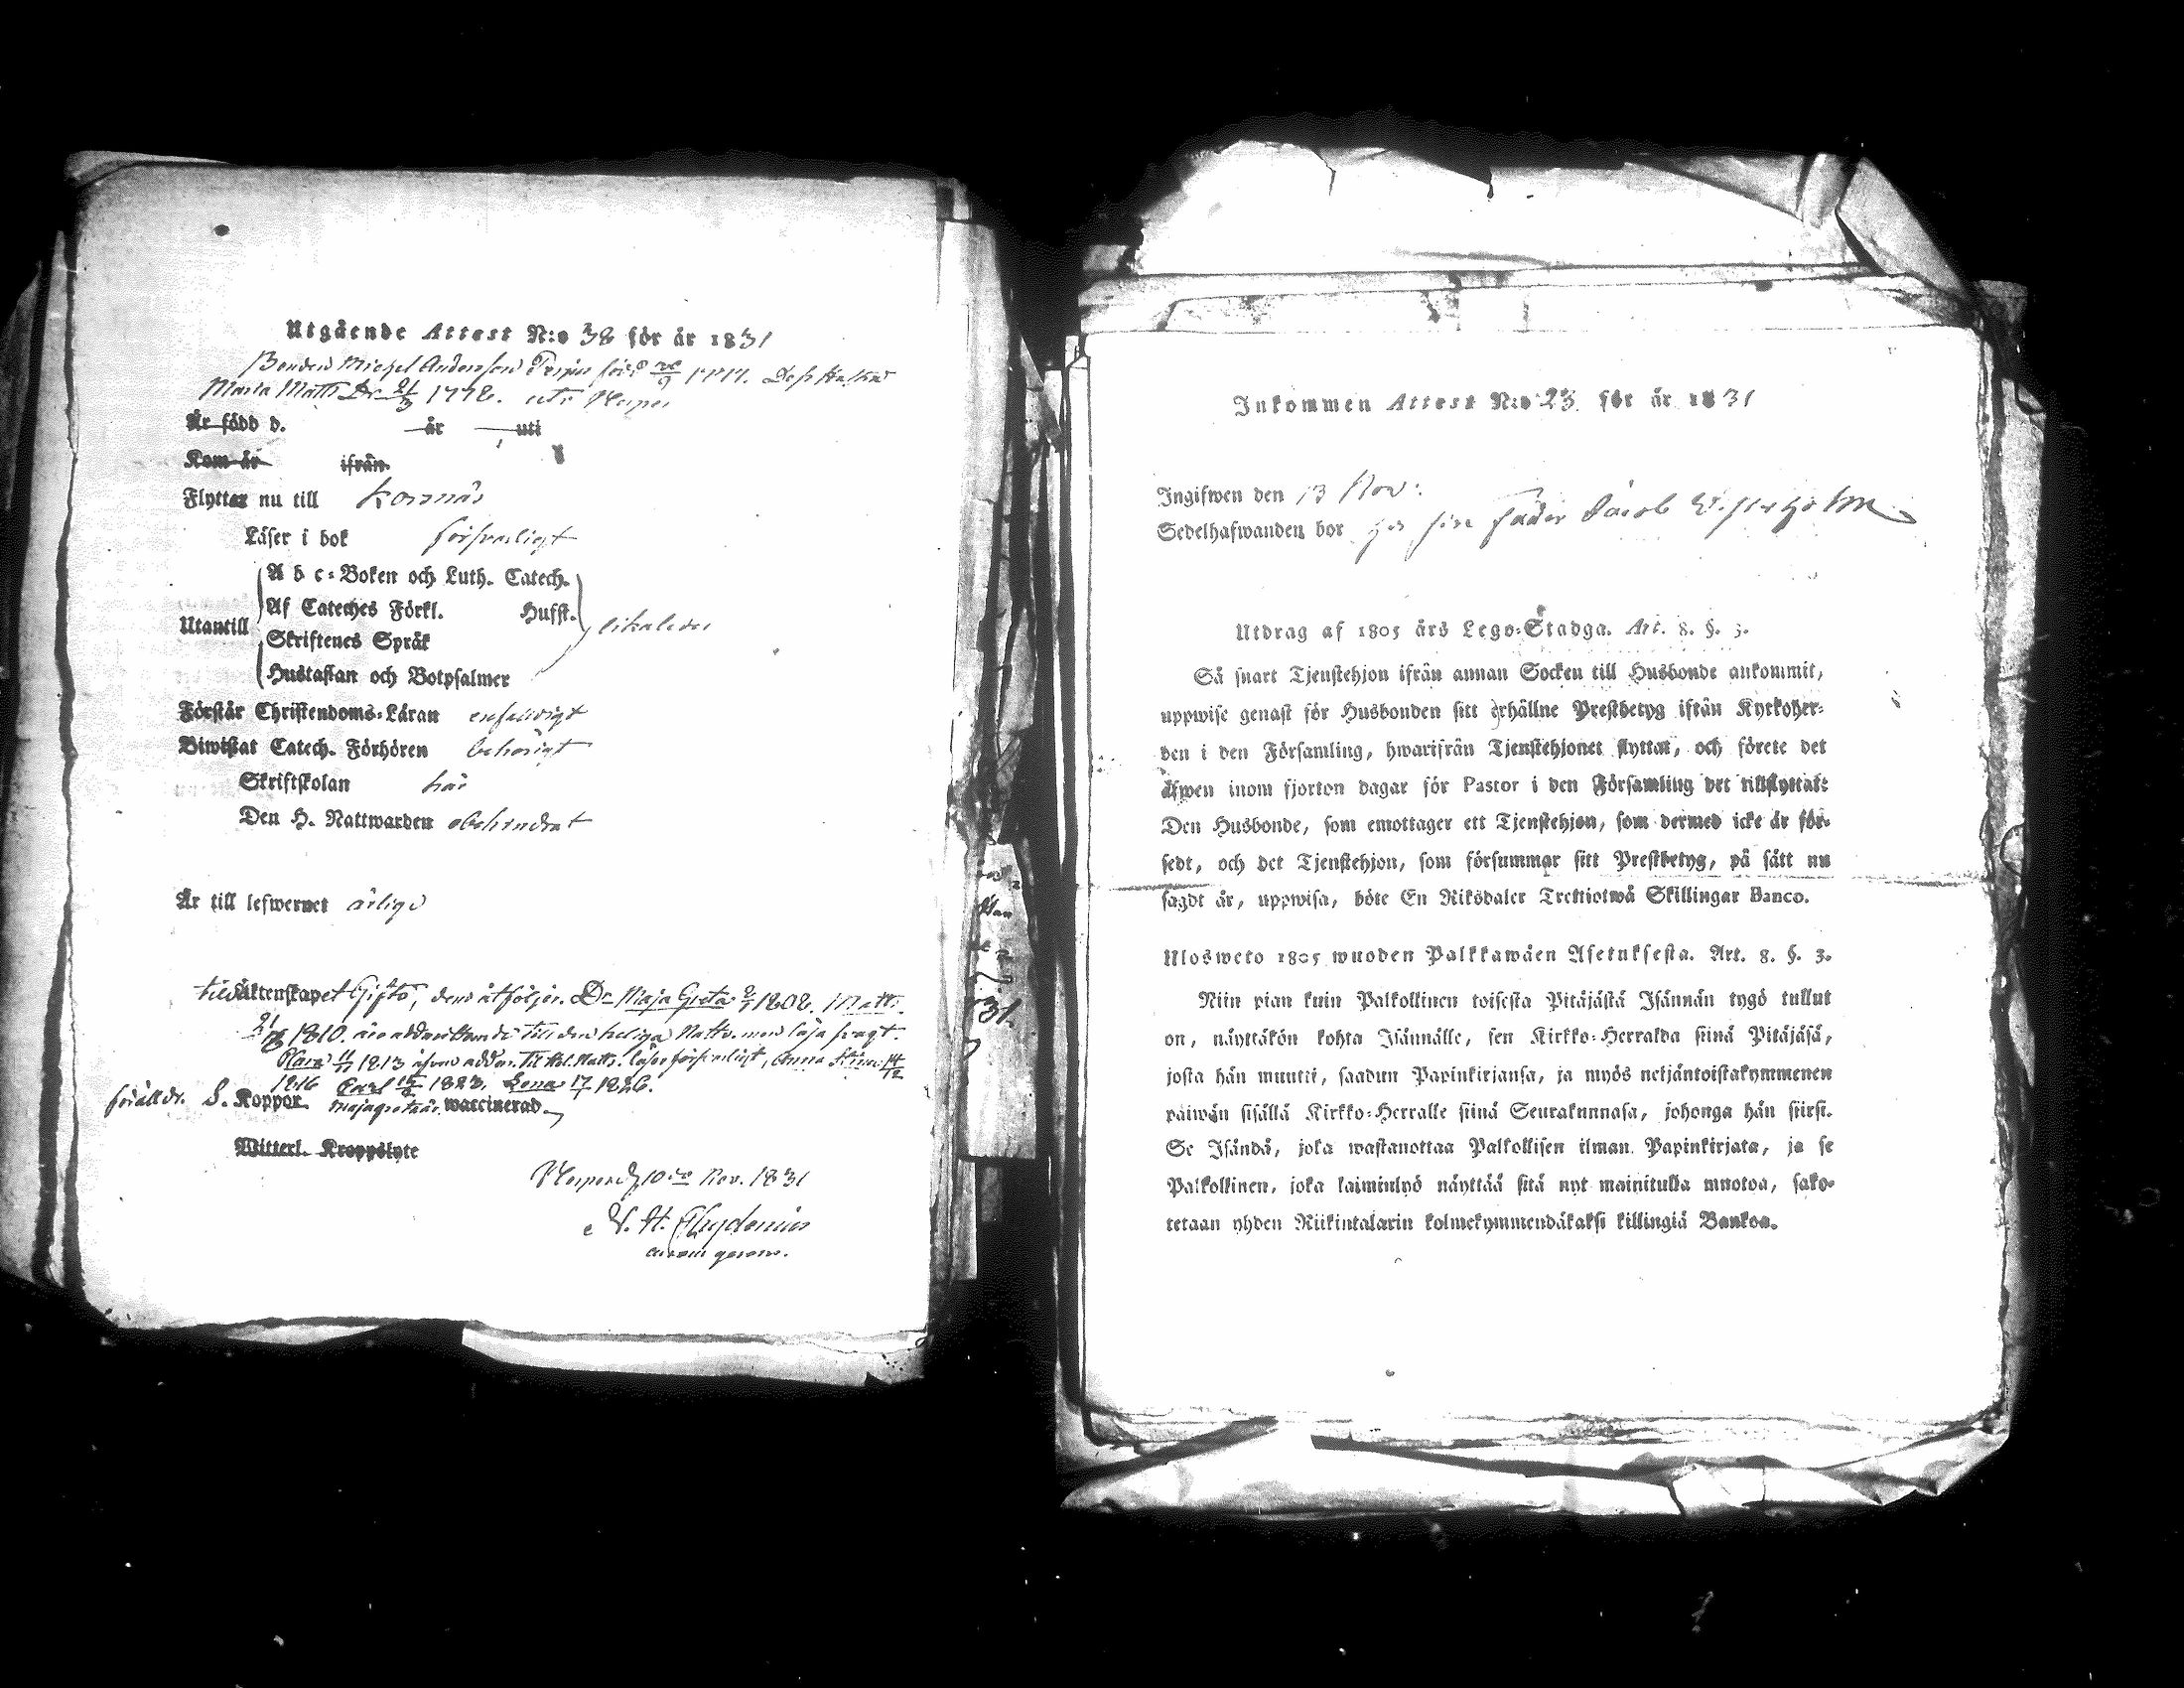 Utgående Attest N:o 38 för år 1831
Bonden Michel Andersson född 1774. Dess Hustru
Maria Matts Dr 21/3 1772.
Är född d. år uti
Kom år ifrån
Flyttar nu till Korsnäs
Läser i bok försvarligt
A b c-Boken och Luth. Catech.
Af Cateches Förkl. Hufst.
Utantill likaledes
Skriftenes Språk
Hustaflan och Botpsalmer
Förstår Christendoms-Läran enfaldigt
Biwistat Catech. Förhören behörigt
Skriftskolan här
Den H. Nattwarden obehindrat
Är till lefwernet ärlige
till Äktenskapet Gifte, dem åtföljer. Dr Maja Greta 1808. Matts
1810. äro admitterade till den heliga Nattv. men läsa svagt.
Clara 1813 äfven läser försvarligt, Anna Stina 14/12
1816 Carl 1823. Lena 17 1826.
föräldr. S. Koppor. Maja Greta är waccinerad
Witterl. Kroppslyte
10de Nov. 1831
Chydenius
Inkommen Attest N:o 23 för år 1831
Ingifwen den 13 Nov:
Sedelhafwanden bor hos sin fader Jacob
Utdrag af 1805 års Lego-Stadga. Art. 8. §. 3.
Så snart Tjenstehjon ifrån annan Socken till Husbonde ankommit,
uppwise genast för Husbonden sitt erhållne Prestbetyg ifrån Kyrkoher-
den i den Församling, hwarifrån Tjenstehjonet flyttat, och förete det
äfwen inom fjorton dagar för Pastor i den Församling det tillflyttat:
Den Husbonde, som emottager ett Tjenstehjon, som dermed icke är för-
sedt, och det Tjenstehjon, som försummar sitt Prestbetyg, på sätt nu
sagdt är, uppwisa, böte En Riksdaler Trettiotwå Skillingar Banco.
Ulosweto 1805 wuoden Palkkawäen Asetuksesta. Art. 8. §. 3.
Niin pian kuin Palkollinen toisesta Pitäjästä Isännän tygö tullut
on, näyttäkön kohta Isännälle, sen Kirkko-Herralda siinä Pitäjäsä,
josta hän muutti, saadun Papinkirjansa, ja myös neljäntoistakymmenen
päiwän sisällä Kirkko-Herralle siinä Seurakunnasa, johonga hän siirsi.
Se Isändä, joka wastanottaa Palkollisen ilman Papinkirjata, ja se
Palkollinen, joka laiminlyö näyttää sitä nyt mainitulla muotoa, sako-
tetaan yhden Riikintalarin kolmekymmendäkaksi killingiä Bankoa.